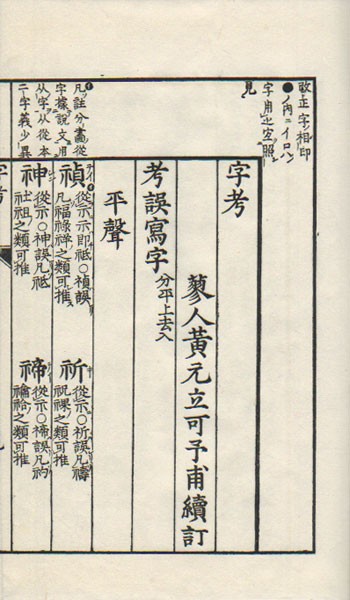 改正字相印
●ノ内ニイロハ
字用ヒ宜照
見
凡註分畫從
字據說文用
从字从從本
二字義少異
字考
蓼人黃元立可予甫續訂
考誤寫字 分平上去入
平聲
禎 從示示即祇○禎誤
凡福祿祥之類可推
祈 從示○祈誤凡禱
祝祼之類可推
神 從示○神誤凡祇
社祖之類可推
禘 從示○禘誤凡礿
禴祫之類可推